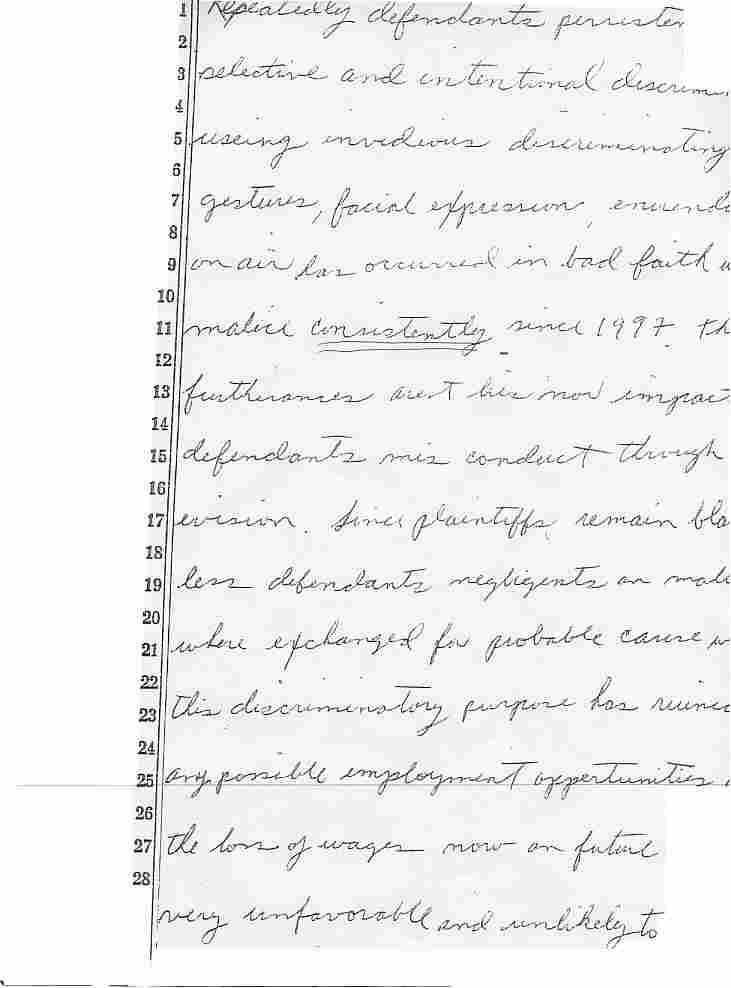 1 Repeatedly defendants persisten
2
3 selective and intentional discrimin
4
5 useing invidious discriminating
6
7 gestures, facial expression, enuend
8
9 on air has occurred in bad faith w
10
11 malice consistently since 1997. Th
12
13 furtherances
14
15 defendants mis conduct through
16
17 evision. Since plaintiffs, remain bla
18
19 less defendants negligents an mali
20
21 where exchanged for probable cause w
22
23 this discriminatory purpose has ruined
24
25 any possible employment oppertunities
26
27 the loss of wages now an future
28
very unfavorable and unlikely to